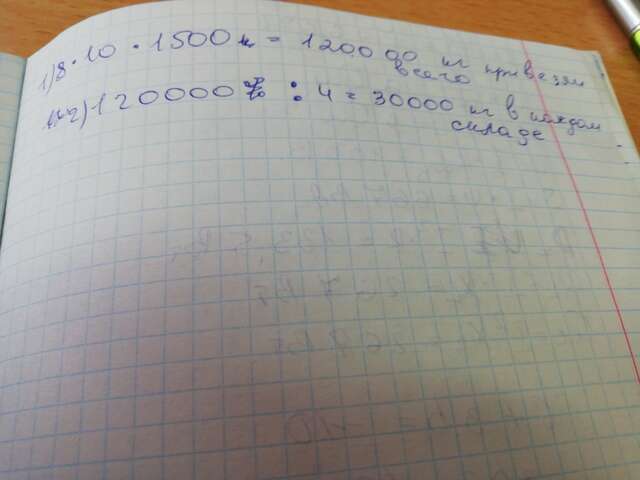 1) 8 · 10 · 1500 = 120000 кг привезли
всего
2) 120000 : 4 = 30000 кг в каждом
складе